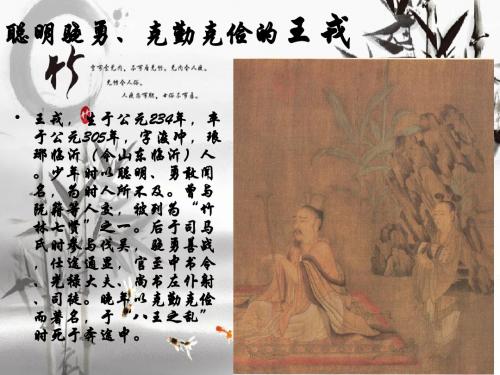 聪明骁勇、克勤克俭的王戎
竹
宁可食无肉，不可居无竹。无肉令人瘦，
无竹令人俗。
人瘦尚可肥，士俗不可医。
• 王戎，生于公元234年，卒
于公元305年，字浚冲，琅
琊临沂（今山东临沂）人
。少年时以聪明、勇敢闻
名，为时人所不及。曾与
阮籍等人交，被列为“竹
林七贤”之一。后于司马
氏时参与伐吴，骁勇善战
，仕途通显，官至中书令
、光禄大夫、尚书左仆射
、司徒。晚年以克勤克俭
而著名，于“八王之乱”
时死于奔途中。